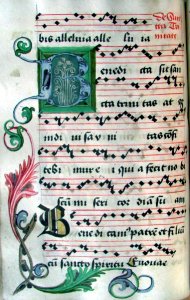 De Sanc
tra Tri
nitate
bis alleluia alle lu ia
Benedi cta sit san
cta trinitas at q
indi uisa v ni tas con
tebi mur e i quia fecit no bi
scu mi seri cor diā su am
Benedi camꝰ patrē et filiū
cū sancto spiritu Euouae